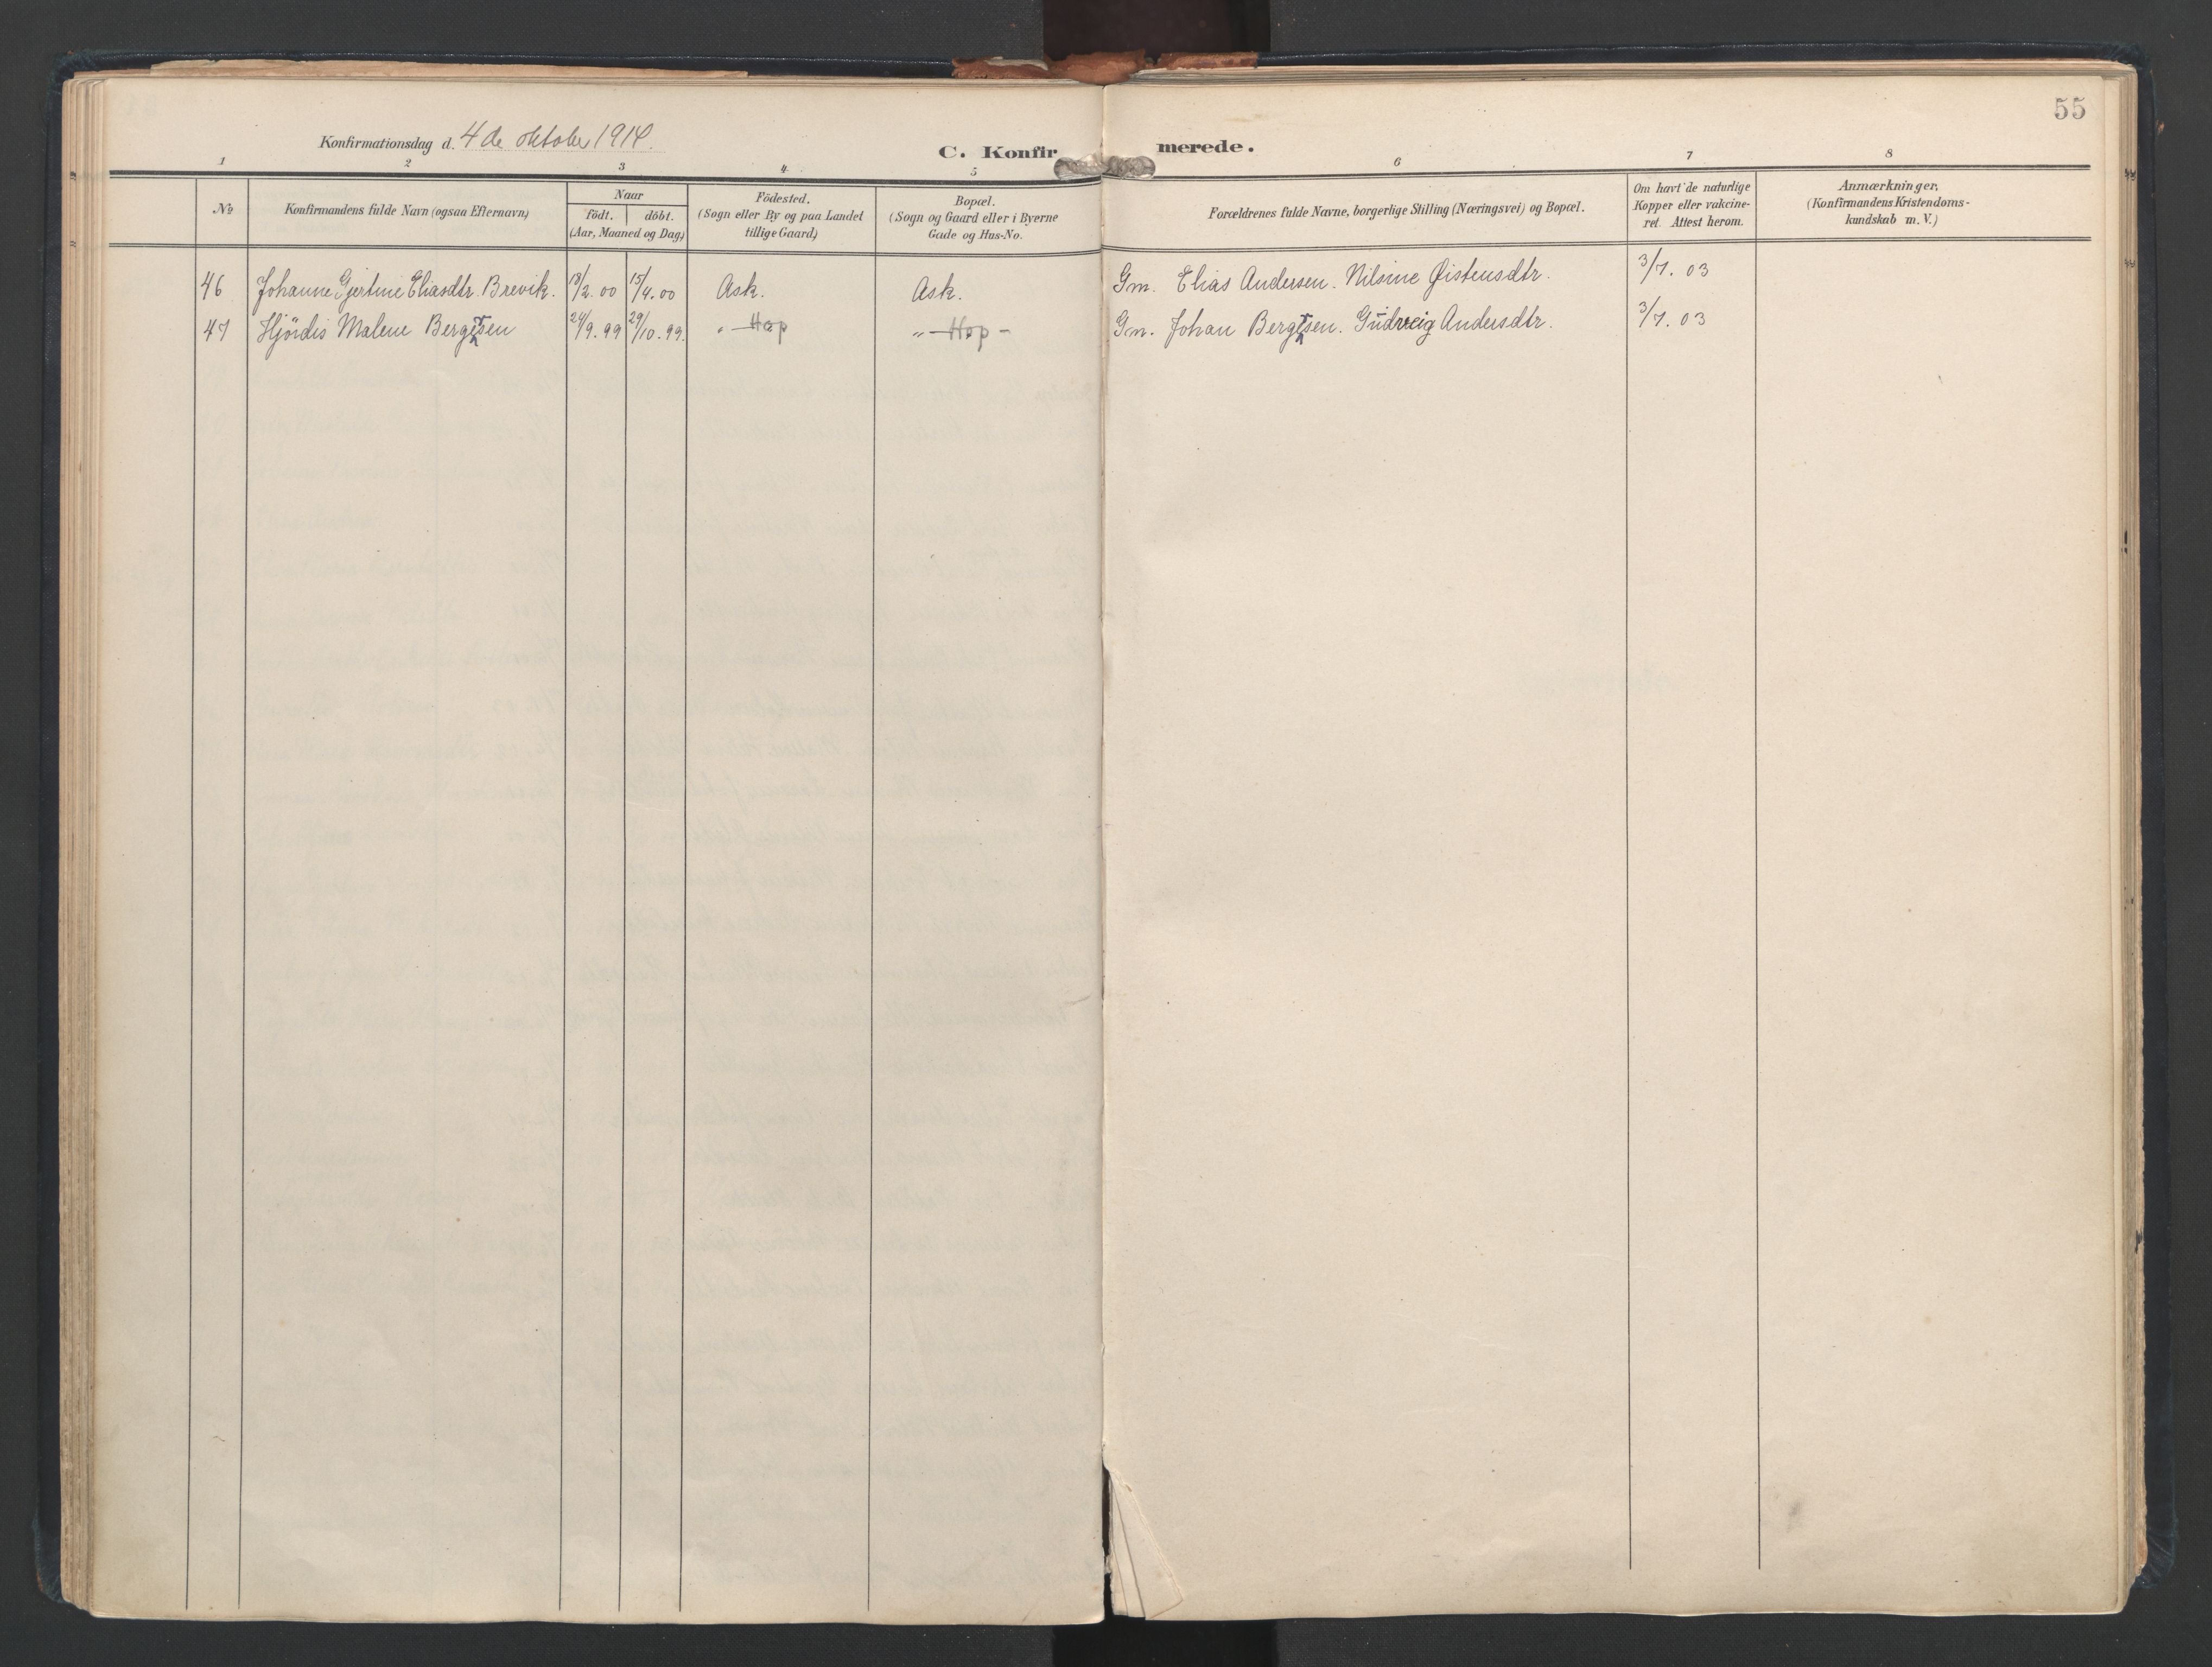 55
Konfirmationsdag d. 4 de oktober 1914.
C. Konfirmerede.
1 2 3 4 5 6 7 8
No
Konfirmandens fulde Navn (ogsaa Efternavn)
Naar
födt. döbt.
(Aar, Maaned og Dag)
Födested.
(Sogn eller By og paa Landet
tillige Gaard)
Bopæl.
(Sogn og Gaard eller i Byerne
Gade og Hus-No.
Forældrenes fulde Navne, borgerlige Stilling (Næringsvei) og Bopæl.
Om havt de naturlige
Kopper eller vakcine-
ret. Attest herom.
Anmærkninger.
(Konfirmandens Kristendoms-
kundskab m. V.)
46 Johanne Gjertine Eliasdtr. Brevik. 18/2.00 15/4.00 Ask. Ask. Gm. Elias Andersen. Nilsine Øistensdtr. 3/7. 03
47 Hjördis Malene Bergesen 24/9.99 29/10.99. " Hop " Hop - Gm. Johan Bergesen. Gudveig Andersdtr. 3/7. 03